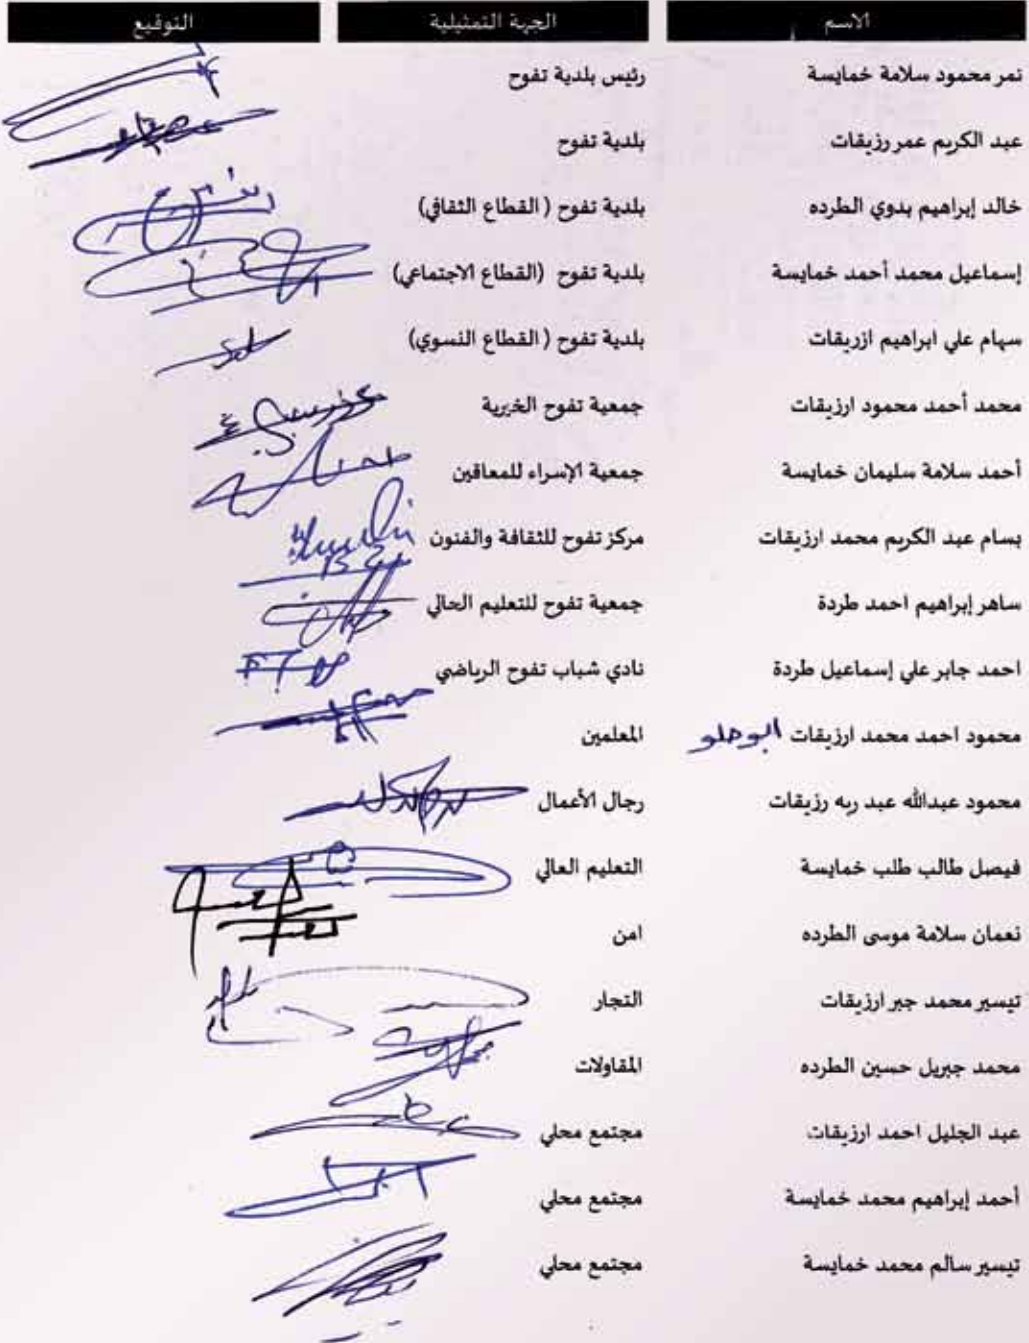 الاسم الجهة التمثيلية التوقيع
نمر محمود سلامة خمايسة رئيس بلدية تفوح
عبد الكريم عمر رزيقات بلدية تفوح
خالد إبراهيم بدوي الطرده بلدية تفوح ( القطاع الثقافي)
إسماعيل محمد أحمد خمايسة بلدية تفوح (القطاع الاجتماعي)
سهام علي ابراهيم ازريقات بلدية تفوح ( القطاع النسوي)
محمد أحمد محمود ارزيقات جمعية تفوح الخيرية
أحمد سلامة سليمان خمايسة جمعية الإسراء للمعاقين
بسام عبد الكريم محمد ارزيقات مركز تفوح للثقافة والفنون
ساهر إبراهيم احمد طردة جمعية تفوح للتعليم الحالي
احمد جابر علي إسماعيل طردة نادي شباب تفوح الرياضي
محمود احمد محمد ارزيقات ابو حلو المعلمين
محمود عبدالله عبد ربه رزيقات رجال الأعمال
فيصل طالب طلب خمايسة التعليم العالي
نعمان سلامة موسى الطرده امن
تيسير محمد جبر ارزيقات التجار
محمد جبريل حسين الطرده المقاولات
عبد الجليل احمد ارزيقات مجتمع محلي
أحمد إبراهيم محمد خمايسة مجتمع محلي
تيسير سالم محمد خمايسة مجتمع محلي